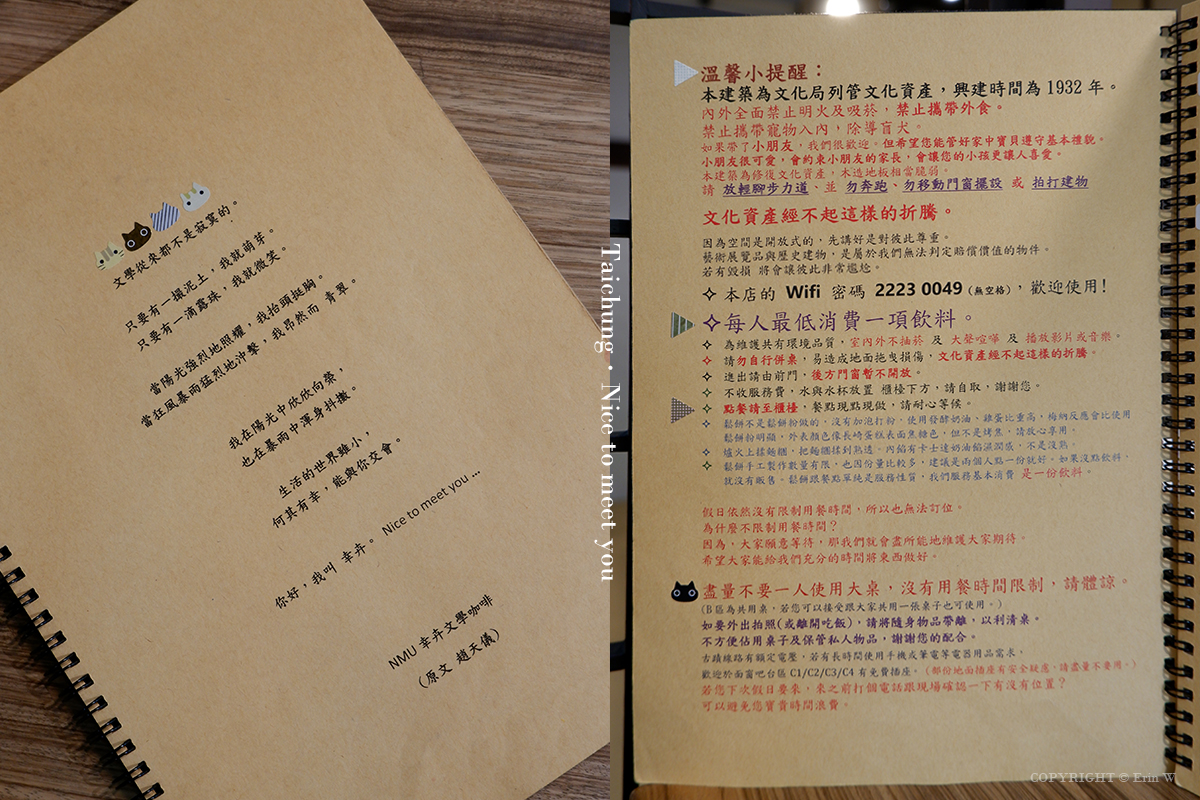 文學從來都不是寂寞的。
只要有一撮泥土，我就萌芽。
只要有一滴露珠，我就微笑。
當陽光強烈地照耀，我抬頭挺胸。
當狂風暴雨猛烈地沖擊，我昂然而 青翠。
我在陽光中欣欣向榮，
也在暴雨中渾身抖擻。
生活的世界雖小，
何其有幸，能與你交會。
你好，我叫 幸卉。 Nice to meet you ...
NMU 幸卉文學咖啡
(原文 趙天儀)
Taichung · Nice to meet you
溫馨小提醒：
本建築為文化局列管文化資產，興建時間為 1932 年。
內外全面禁止明火及吸菸，禁止攜帶外食。
禁止攜帶寵物入內，除導盲犬。
如果帶了小朋友，我們很歡迎。但希望您能管好家中寶貝遵守基本禮貌。
小朋友很可愛，會約束小朋友的家長，會讓您的小孩更讓人喜愛。
本建築為修復文化資產，木造地板相當脆弱。
請 放輕腳步力道、並 勿奔跑、勿移動門窗擺設 或 拍打建物
文化資產經不起這樣的折騰。
因為空間是開放式的，先講好是對彼此尊重。
藝術展覽品與歷史建物，是屬於我們無法判定賠償價值的物件。
若有毀損 將會讓彼此非常尷尬。
✧ 本店的 Wifi 密碼 2223 0049 (無空格)，歡迎使用!
✧每人最低消費一項飲料。
✧ 為維護共有環境品質，室內外不抽菸 及 大聲喧嘩 及 播放影片或音樂。
✧ 請勿自行併桌，易造成地面拖曳損傷，文化資產經不起這樣的折騰。
✧ 進出請由前門，後方門窗暫不開放。
✧ 不收服務費，水與水杯放置 櫃檯下方，請自取，謝謝您。
✧ 點餐請至櫃檯，餐點現點現做，請耐心等候。
✧ 鬆餅不是鬆餅粉做的，沒有加泡打粉，使用發酵奶油、雞蛋比重高，梅納反應會比使用
鬆餅粉明顯，外表顏色像長崎蛋糕表面焦糖色，但不是烤焦，請放心享用。
✧ 爐火上揉麵糰，把麵糰揉到熟透。內餡有卡士達奶油餡濕潤感，不是沒熟。
✧ 鬆餅手工製作數量有限，也因份量比較多，建議是兩個人點一份就好。如果沒點飲料，
就沒有販售。鬆餅跟餐點單純是服務性質，我們服務基本消費 是一份飲料。
假日依然沒有限制用餐時間，所以也無法訂位。
為什麼不限制用餐時間？
因為，大家願意等待，那我們就會盡所能地維護大家期待。
希望大家能給我們充分的時間將東西做好。
盡量不要一人使用大桌，沒有用餐時間限制，請體諒。
(B 區為共用桌，若您可以接受跟大家共用一張桌子也可使用。)
如要外出拍照(或離開吃飯)，請將隨身物品帶離，以利清桌。
不方便佔用桌子及保管私人物品，謝謝您的配合。
古蹟線路有額定電壓，若有長時間使用手機或筆電等電器用品需求，
歡迎於面窗吧台區 C1/C2/C3/C4 有免費插座。(部份地面插座有安全疑慮，請盡量不要用。)
若您下次假日要來，來之前打個電話跟現場確認一下有沒有位置？
可以避免您寶貴時間浪費。
COPYRIGHT © Erin W